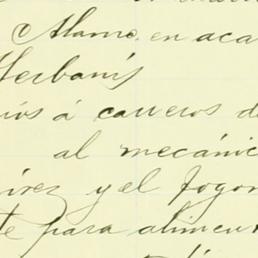 Alamo, en aca
Herbanís
ios á carreros de
al mecánic
írez y el fogon
te para alimen